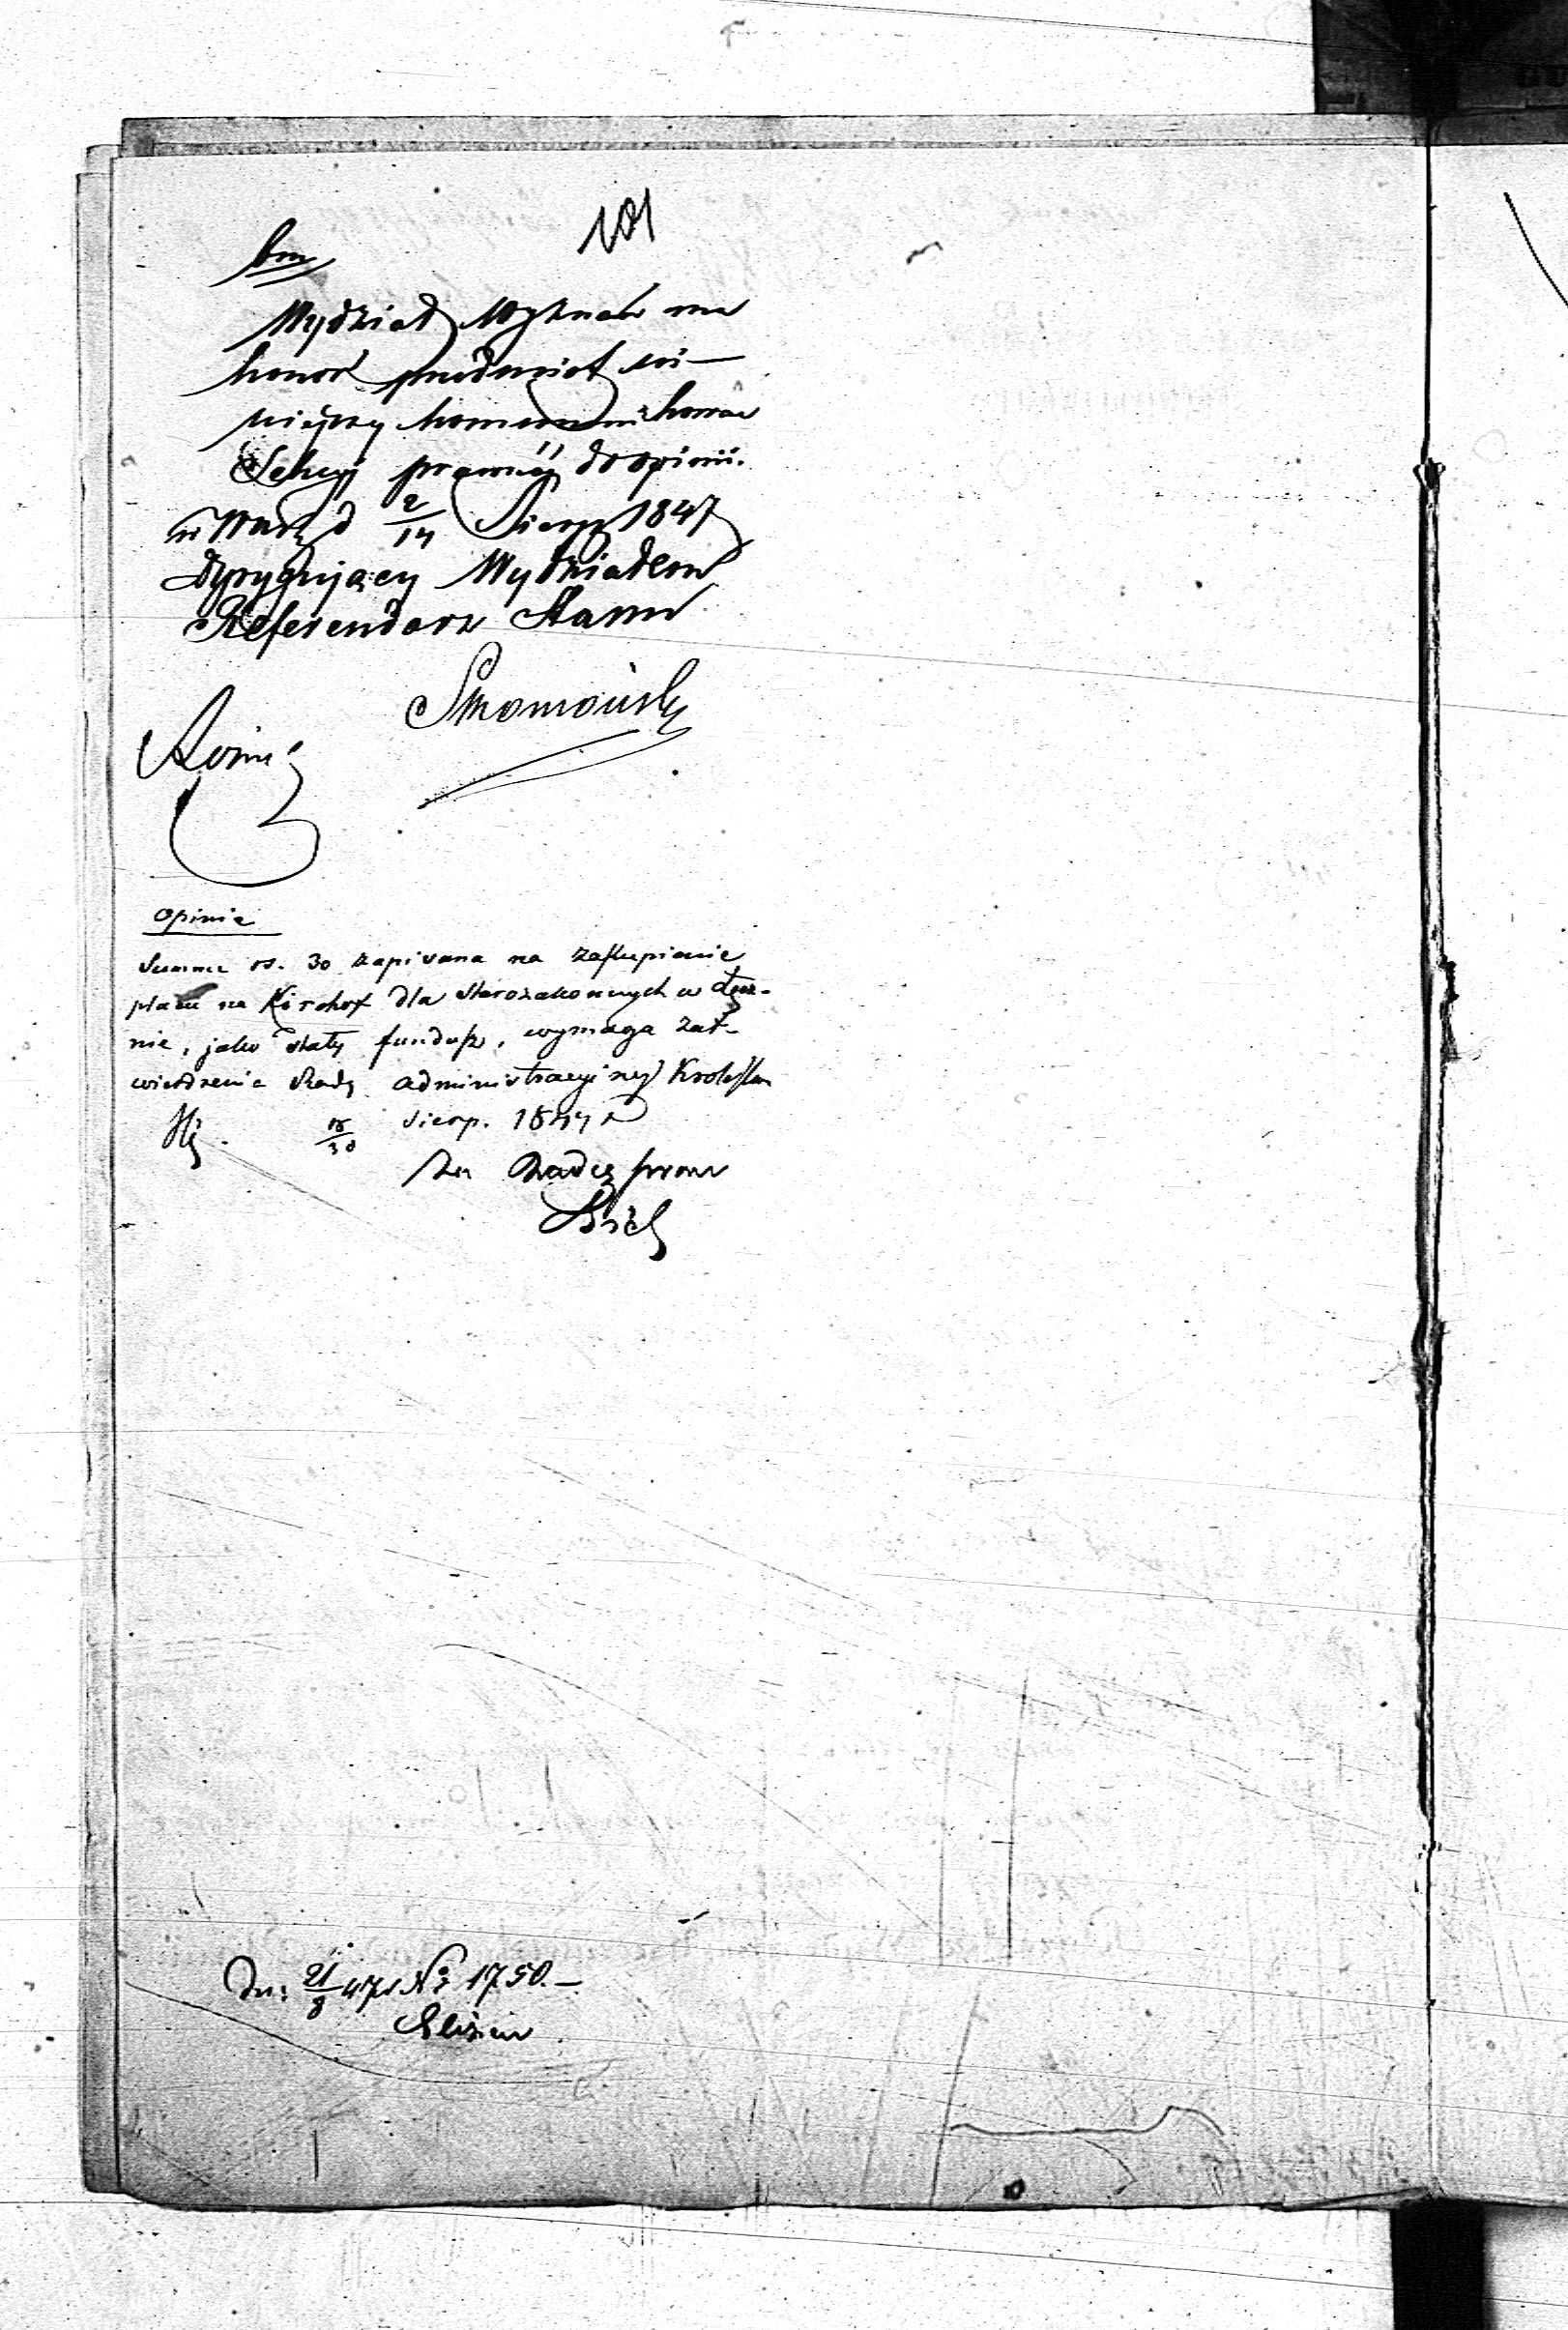 101
bm
Wydział Wyznań ma
honor przedmiot ni-
niejszy komunikować
Sekcyi prawnéj do opinii.
w Warsz d 2/14 Sierp 1847
Dyrygujący Wydziałem
Referendarz Stanu
Opinia
Summa rs. 30 zapisana na zakupienie
placu na Kirchof dla starozakonnych w
nie, jako stały fundusz, wymaga zat-
wierdzenia Rady administracyjnéj Królestwa
18/30 Sierp. 1847 r
Za Radcę praw
Dn: 21/8 47 r No 1750.-